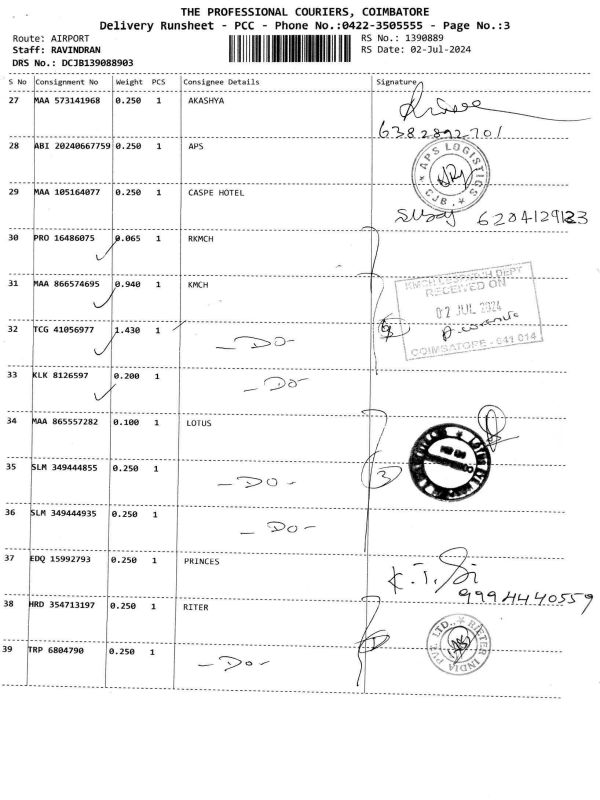 THE PROFESSIONAL COURIERS, COIMBATORE
Delivery Runsheet - PCC - Phone No.:0422-3505555 - Page No.:3
Route: AIRPORT RS No.: 1390889
Staff: RAVINDRAN RS Date: 02-Jul-2024
DRS No.: DCJB139088903
S No Consignment No Weight PCS Consignee Details Signature
27 MAA 573141968 0.250 1 AKASHYA
6382892701
28 ABI 20240667759 0.250 1 APS
* APS LOGISTICS * CJB.
29 MAA 105164077 0.250 1 CASPE HOTEL
6204129133
30 PRO 16486075 0.065 1 RKMCH
31 MAA 866574695 0.940 1 KMCH
KMCH DESPATCH DEPT
RECEIVED ON
02 JUL 2024
COIMBATORE - 641 014
32 TCG 41056977 1.430 1 -DO-
33 KLK 8126597 0.200 1 -DO-
34 MAA 865557282 0.100 1 LOTUS
35 SLM 349444855 0.250 1 -DO- 3
36 SLM 349444935 0.250 1 -DO-
37 EDQ 15992793 0.250 1 PRINCES
9994440559
38 HRD 354713197 0.250 1 RITER
39 TRP 6804790 0.250 1 -DO-
RIETER INDIA PVT. LTD.